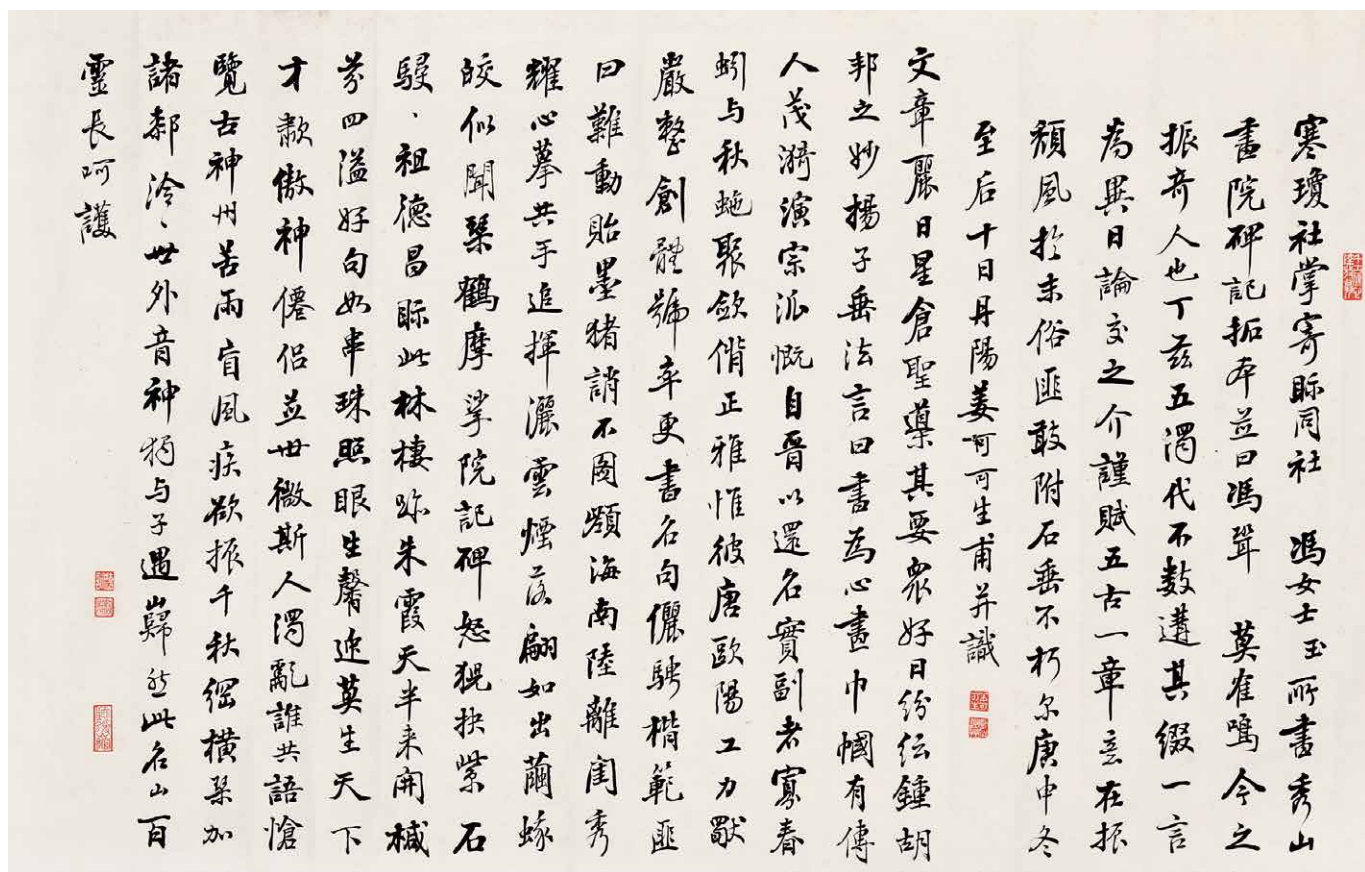 寒瓊社掌寄眎同社　馮女士玉所書秀山
書院碑記拓本並曰馮聳　莫隺鳴今之
振奇人也丁兹五濁代不數遘其綴一言
為異日論交之介謹賦五古一章意在振
頹風於末俗匪敢附石垂不朽尔庚申冬
至后十日丹陽姜可生甫并識
文章麗日星倉聖導其要眾好日紛紜鍾胡
邦之妙揚子垂法言曰書為心畫巾幗有傳
人茂漪演宗派慨自晋以還名實副者寡春
蚓与秋虵聚斂偕正雅惟彼唐歐陽工力猒
嚴整創體號率更書名句儷騁楷範匪
曰難動貽墨猪誚不圖顥海南陸離閨秀
耀心摹共手追揮灑雲煙落翩如出繭蛾
皎似聞琹鶴摩挲院記碑怒猊抉紫石
駸、祖德昌眎此林棲跡朱霞天半来開椷
芬四溢好句如串珠照眼生馨迆莫生天下
才歗傲神僊侣並世微斯人濁亂誰共語愴
覽古神州苦雨盲風疾欲振千秋綱横琹加
諸郲泠、世外音神物与子遇巋然此名山百
靈長呵護